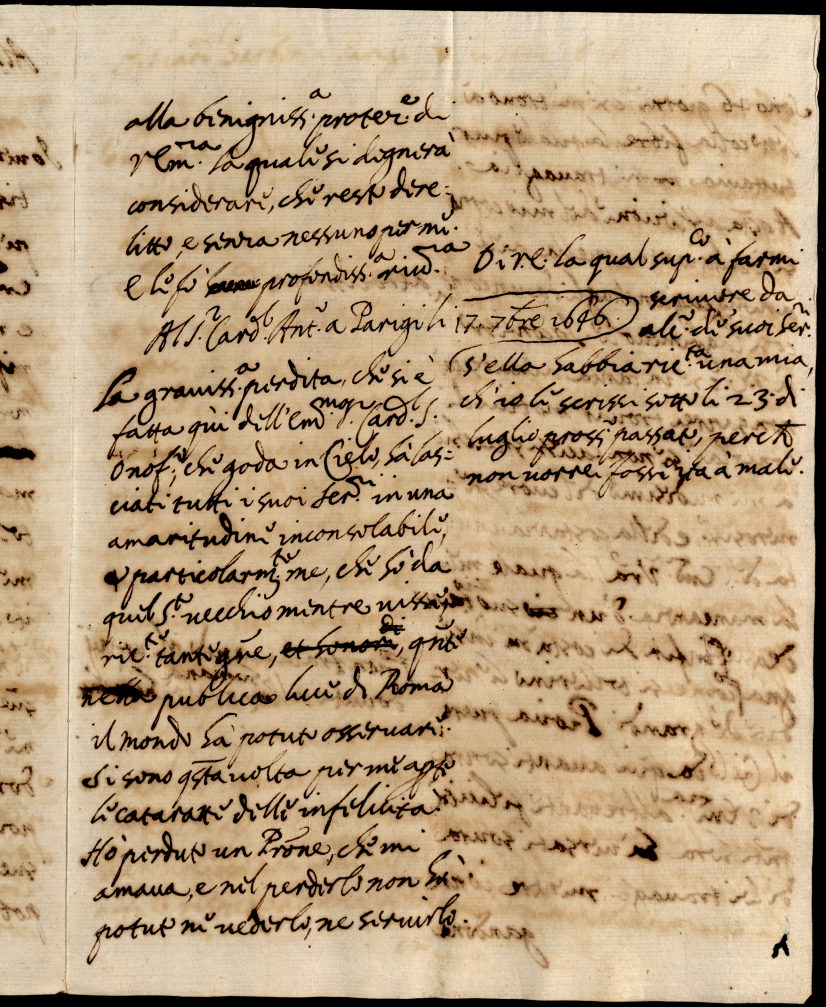 alla benigniss.a protet.e di
V. Em.za la quale si degnerà
considerare, che resto dere=
litto, e senza nessuno per me.
E le fò profondiss.a riu.za
Al S.r Card.l Ant.o a Parigi li 17. 7bre 1646.
La graviss.a perdita, che si è
fatta quì dell'Em.mo Card.l S.
Onof.o, che goda in Cielo, hà las=
ciati tutti i suoi Ser.ri in una
amaritudine inconsolabile,
e particolarm.te me, che hò da
quel S.to vecchio mentre visse
ric.te tante gre, et honori, q.nte
nella publica luce di Roma
il mondo hà potuto osservare.
Si sono q.sta volta per me ap.te
le cataratte delle infelicità.
Hò perduto un Prone, che mi
amava, e nel perderlo non hò
potuto ne vederlo, ne servirlo.
Di re. la qual sup.co à farmi
scrivere da
alc.o de suoi Ser.ri
s'ella habbia ric.ta una mia,
ch'io le scrissi sotto li 23 di
luglio pross.o passato, perche
non vorrei fosse ita à male.